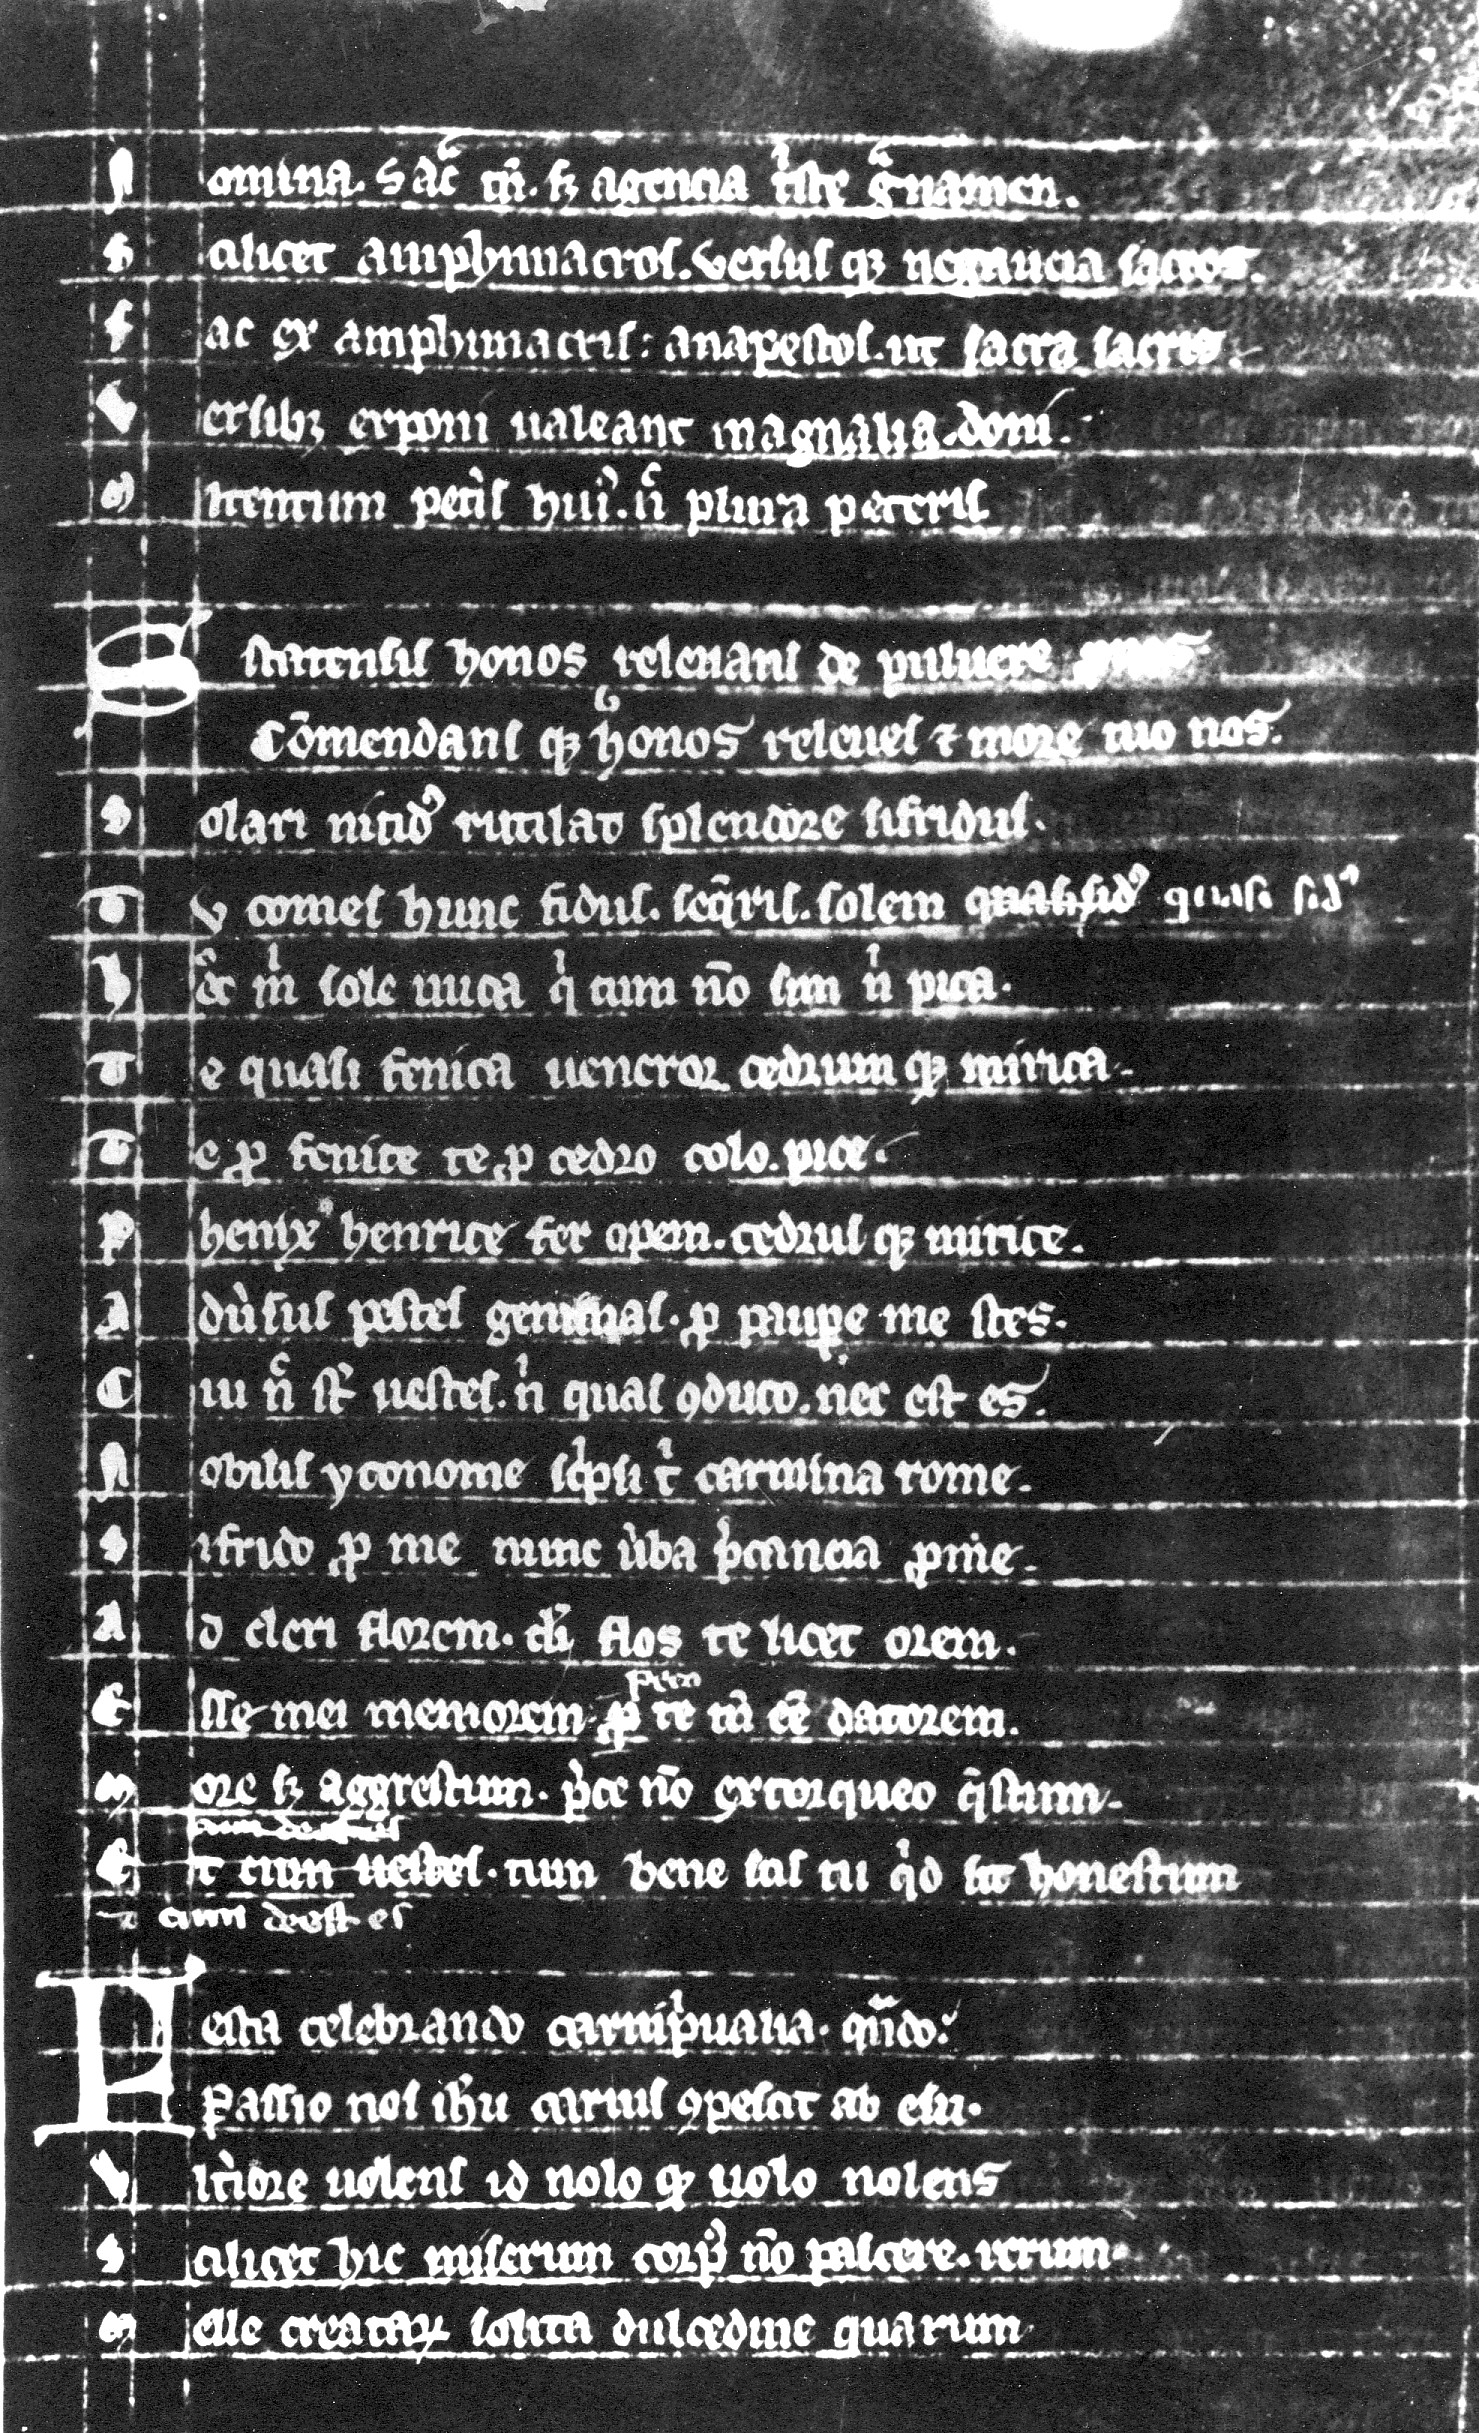 N omina. S ac̄ tn̄. sꝫ agencia tͥste gͣuamen.
S cilicet amphymacros. versus qꝫ negancia sacros.
F ac ex amphimacris: anapestos. ut sacra sacris.
V ersibꝫ exponi ualeant magnalia. doni.
M itentum petis huiꝰ. n̄ plura peteris
Statensis honos releuans de puluere
Cōmendans qꝫ honos releues ⁊ more tuo nos.
S olari nitidꝰ rutilat splendore sifridus.
T v comes hunc fidus. seq̄ris. solem quasi sidꝰ quasi sidꝰ
H ac mͥ sole uuica qͥ cum nō sim nͥ pica.
T e quasi fenica ueneror cedrum qꝫ mirica.
T e ꝓ fenice te ꝓ cedro colo. pice.
P henix henrice fer opem. cedrus qꝫ mirice.
A du̓sus pestes geminas. ꝓ paupe̱ me stes.
C ui n̄ st̄ uestes. nͥ quas ꝯduco. nec est es.
N obilis yconome scͥpsi tͥ carmina rome.
S ifrido ꝓ me nunc u̓ba p̓cancia ꝓme.
A d cleri florem. cl̓i flos te licet orem.
E sse mei memorem. ꝓ te tn̄ eē datorem.
M ore sꝫ aggrestum. p̓ce nō extorqueo q̄stum.
E t cum uestes. tum bene scis tu qͥd sit honestum
⁊ cum deest es
Festa celebrando carnipͥualia. qn̄do.
Passio nos ihu carnis ꝯpescit ab esu.
V lt̓iore uolens id nolo qꝫ uolo nolens
S cilicet hic miserum corpꝰ nō pascere. rerum.
M elle creataꝝ solita dulcedine quarum